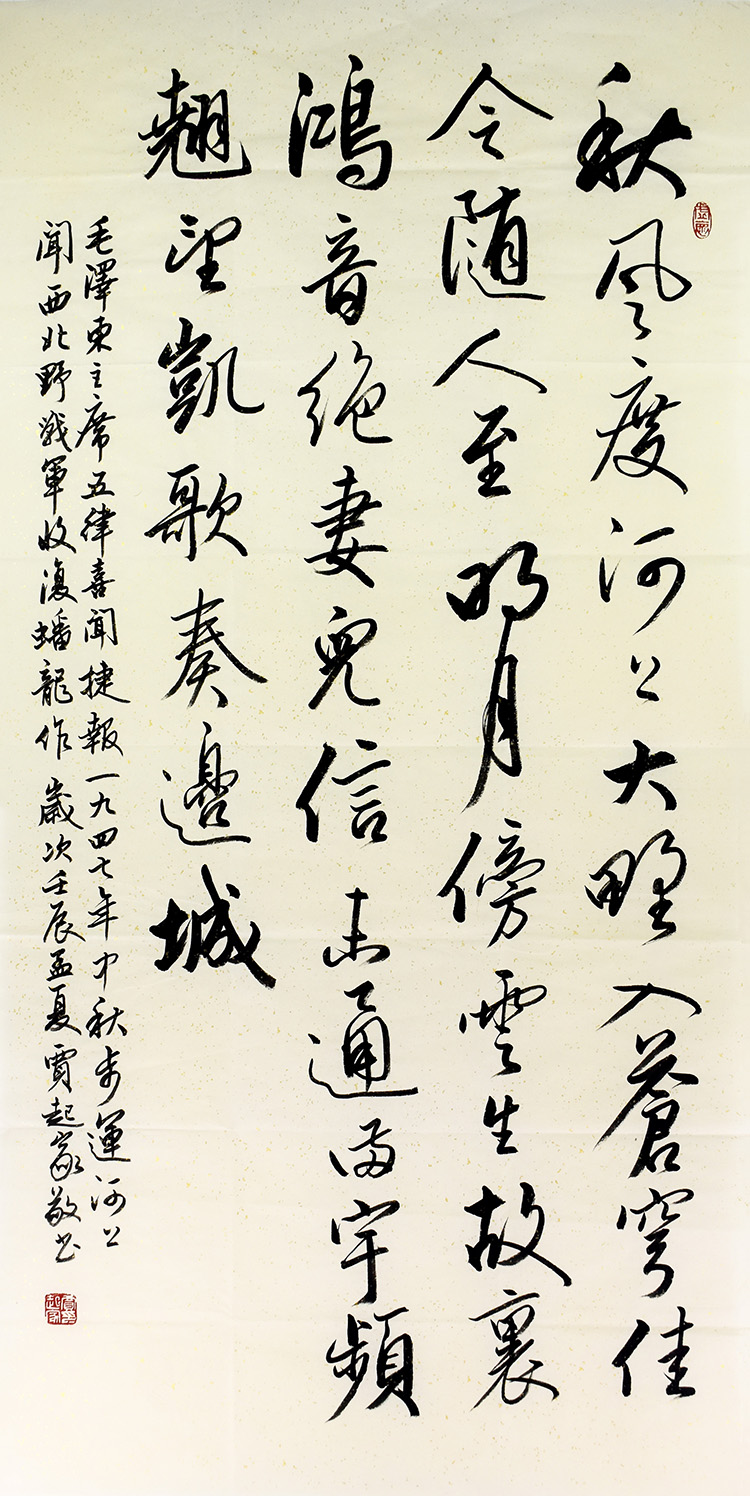 秋風度河上大野入蒼穹佳
令随人至明月傍雲生故裏
鴻音絶妻兒信未通滿宇頻
翹望凱歌奏邊城
毛澤東主席五律喜聞捷報一九四七年中秋步運河上
聞西北野戰軍收復蟠龍作歲次壬辰孟夏賈起家敬书